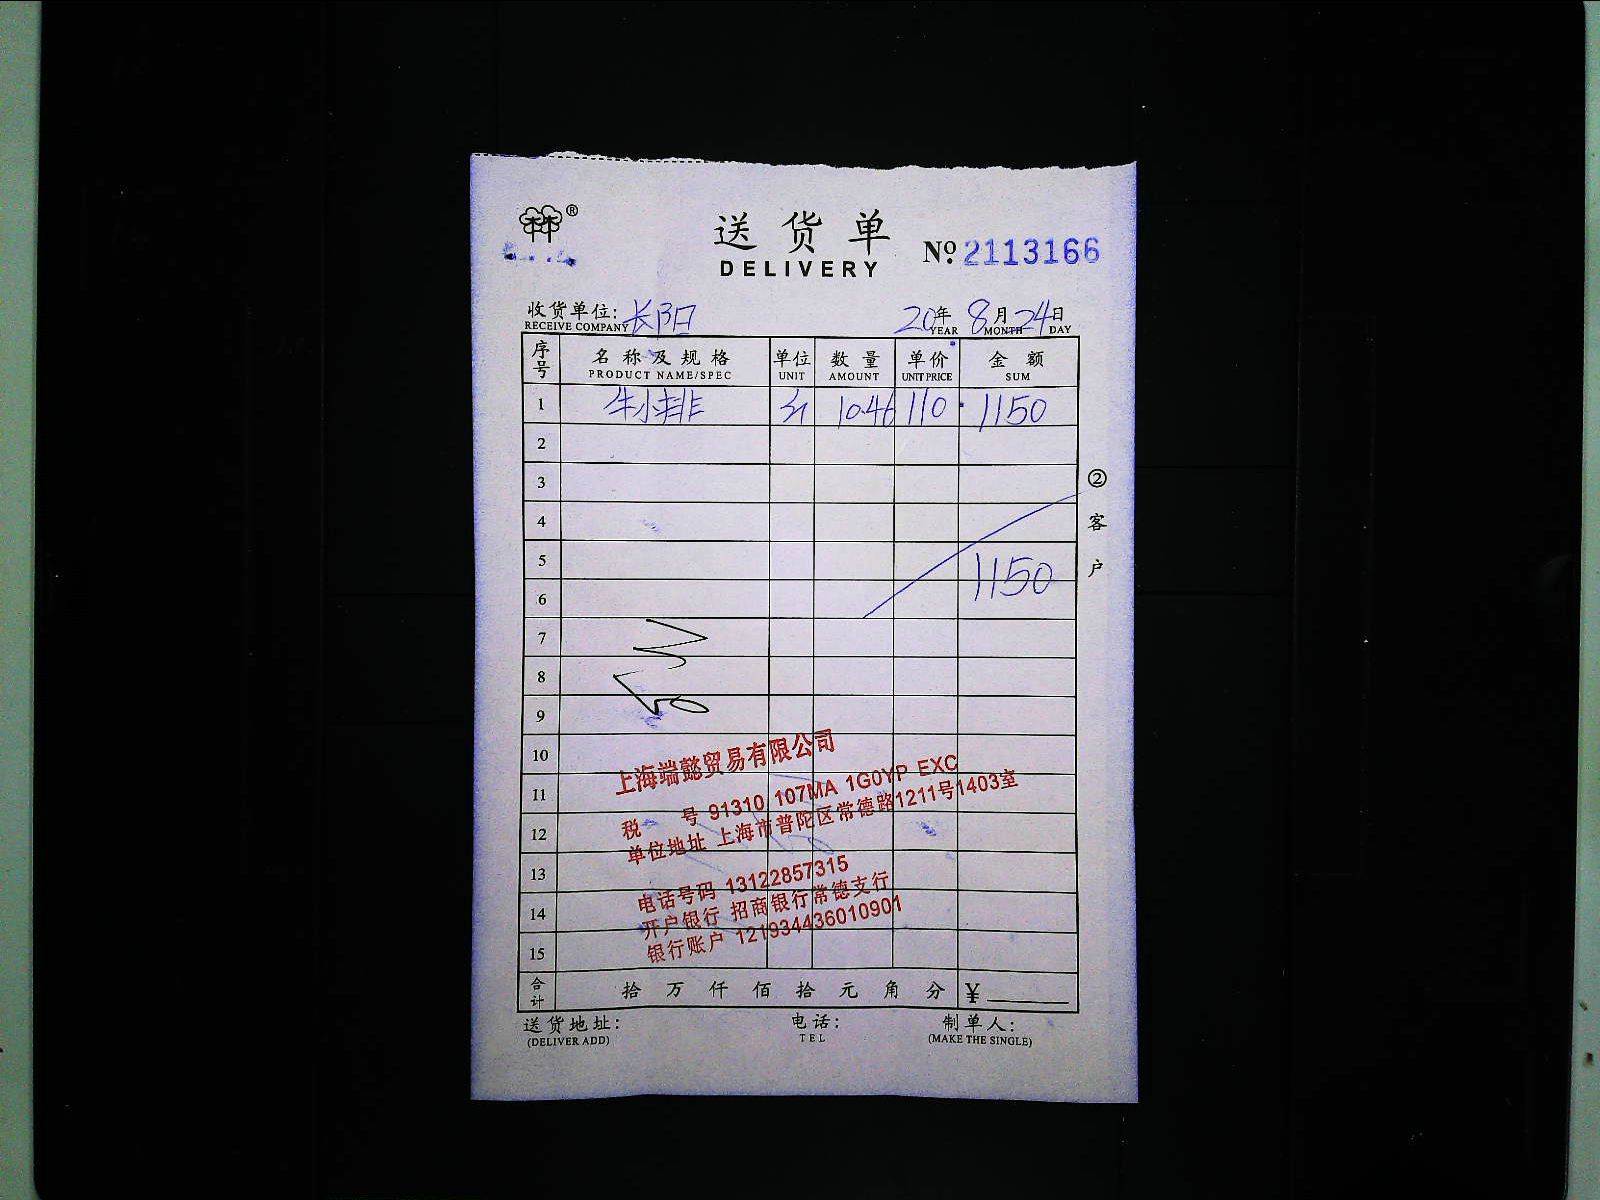 ®
送货单
DELIVERY
No. 2113166
收货单位: 长阳
RECEIVE COMPANY
20年 8月 24日
YEAR MONTH DAY
序号 名称及规格 单位 数量 单价 金额
PRODUCT NAME/SPEC UNIT AMOUNT UNIT PRICE SUM
1 牛小排 10.46 110 1150
2
3
4
5
1150
6
7
8
9
10
11
12
13
14
15
②客户
上海端懿贸易有限公司
税 号 91310 107MA 1G0YP EXC
单位地址 上海市普陀区常德路1211号1403室
电话号码 13122857315
开户银行 招商银行常德支行
银行账户 121934436010901
合计 拾 万 仟 佰 拾 元 角 分 ¥
送货地址: 电话: 制单人:
(DELIVER ADD) TEL (MAKE THE SINGLE)